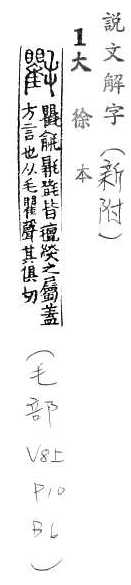 説文解字(新附)
1大徐本
氍毹毾㲪皆氊緂之屬蓋
方言也从毛瞿聲其俱切
(毛部 V8上 P10 B6)